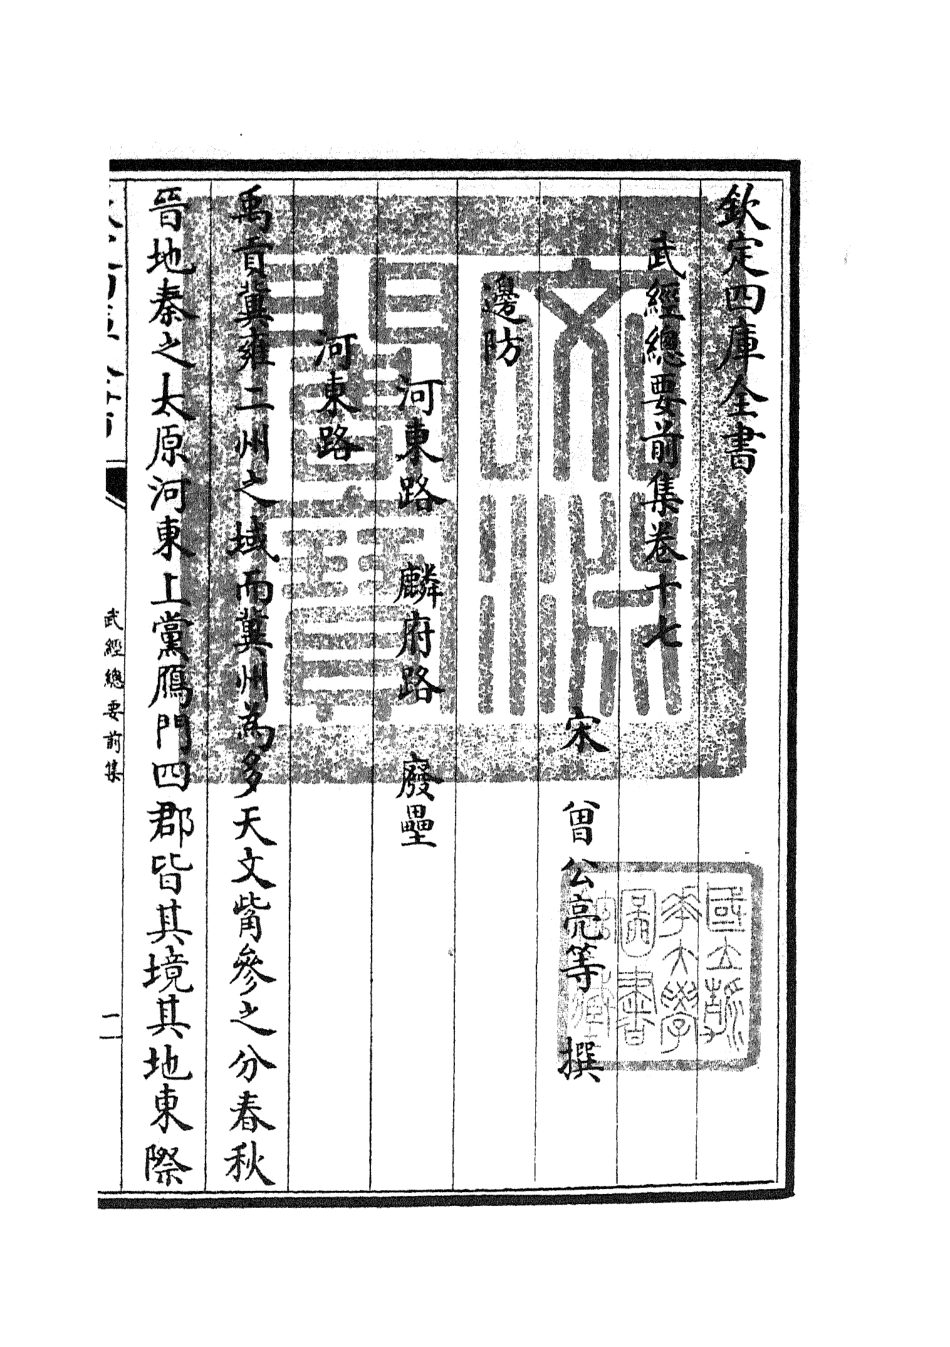 欽定四庫全書
武經總要前集卷十七
宋 曾公亮等 撰
邊防
河東路 麟府路 廢壘
河東路
禹貢冀雍二州之域而冀州為多天文觜參之分春秋
晉地秦之太原河東上黨鴈門四郡皆其境其地東際
武經總要前集
一
文淵閣寶
國立清華大學圖書館藏